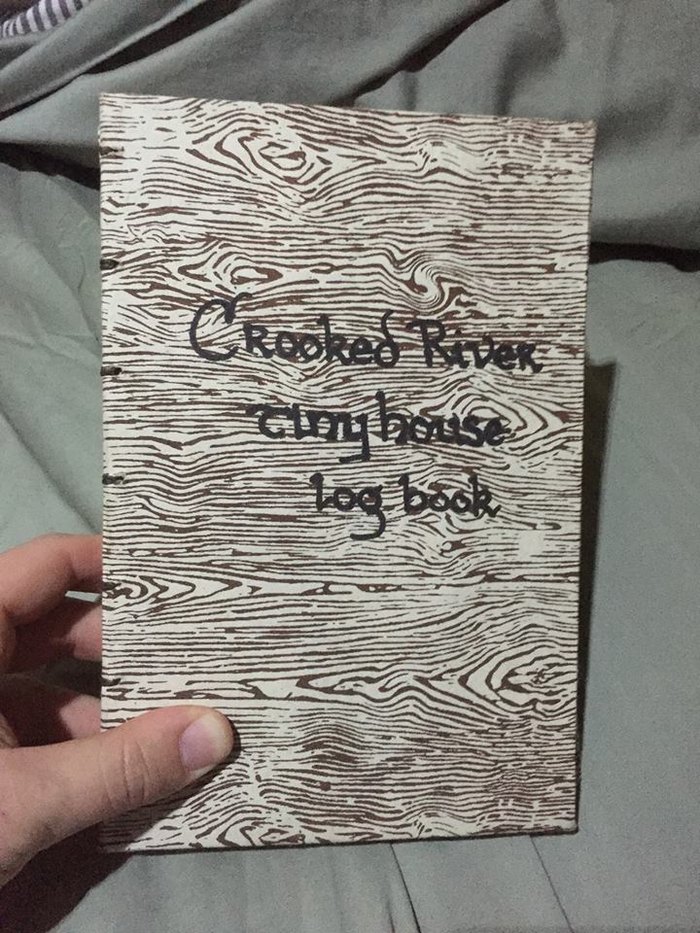 Crooked River
tiny house
log book